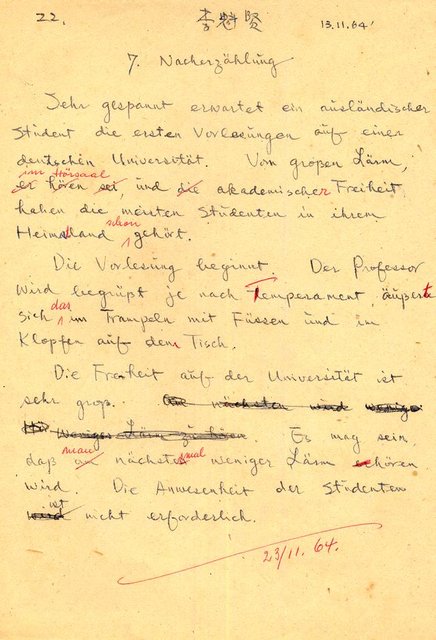 22. 李魁賢 13.11.64
7. Nacherzählung
Sehr gespannt erwartet ein ausländischer
Student die ersten Vorlesungen auf einer
deutschen Universität. Vom großen Lärm,
im Hörsaal
er hören sei, und die akademischer Freiheit
haben die meisten Studenten in ihrem
schon
Heimatland gehört.
Die Vorlesung beginnt. Der Professor
wird begrüßt je nach Temperament, äußert
das
sich im Trampeln mit Füssen und im
Klopfen auf den Tisch.
Die Freiheit auf der Universität ist
sehr groß. nächsten wird wenige
weniger Lärm zu hören. Es mag sein,
man mal
daß nächstes weniger Lärm hören
wird. Die Anwesenheit der Studenten
ist
wird nicht erforderlich.
23/11. 64.